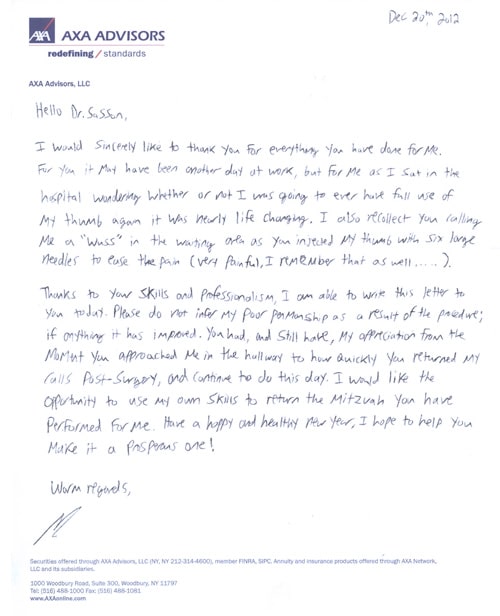 Dec 20th, 2012
AXA AXA ADVISORS
redefining / standards
AXA Advisors, LLC
Hello Dr. Sasson,
I would Sincerely like to thank you for everything you have done for me.
For you it may have been another day at work, but for me as I sat in the
hospital wondering whether or not I was going to ever have full use of
my thumb again it was nearly life changing. I also recollect you calling
me a "Wuss" in the waiting area as you injected my thumb with six large
needles to ease the pain (very painful, I remember that as well.....).
Thanks to your skills and professionalism, I am able to write this letter to
you today. Please do not infer my poor penmanship as a result of the procedure;
if anything it has improved. You had, and still have, my appreciation from the
moment you approached me in the hallway to how quickly you returned my
calls post-surgery, and continue to do this day. I would like the
opportunity to use my own skills to return the Mitzvah you have
performed for me. Have a happy and healthy new year, I hope to help you
make it a prosperous one!
Warm regards,
Securities offered through AXA Advisors, LLC (NY, NY 212-314-4600), member FINRA, SIPC. Annuity and insurance products offered through AXA Network,
LLC and its subsidiaries.
1000 Woodbury Road, Suite 300, Woodbury, NY 11797
Tel: (516) 488-1000 Fax: (516) 488-1081
www.AXAonline.com